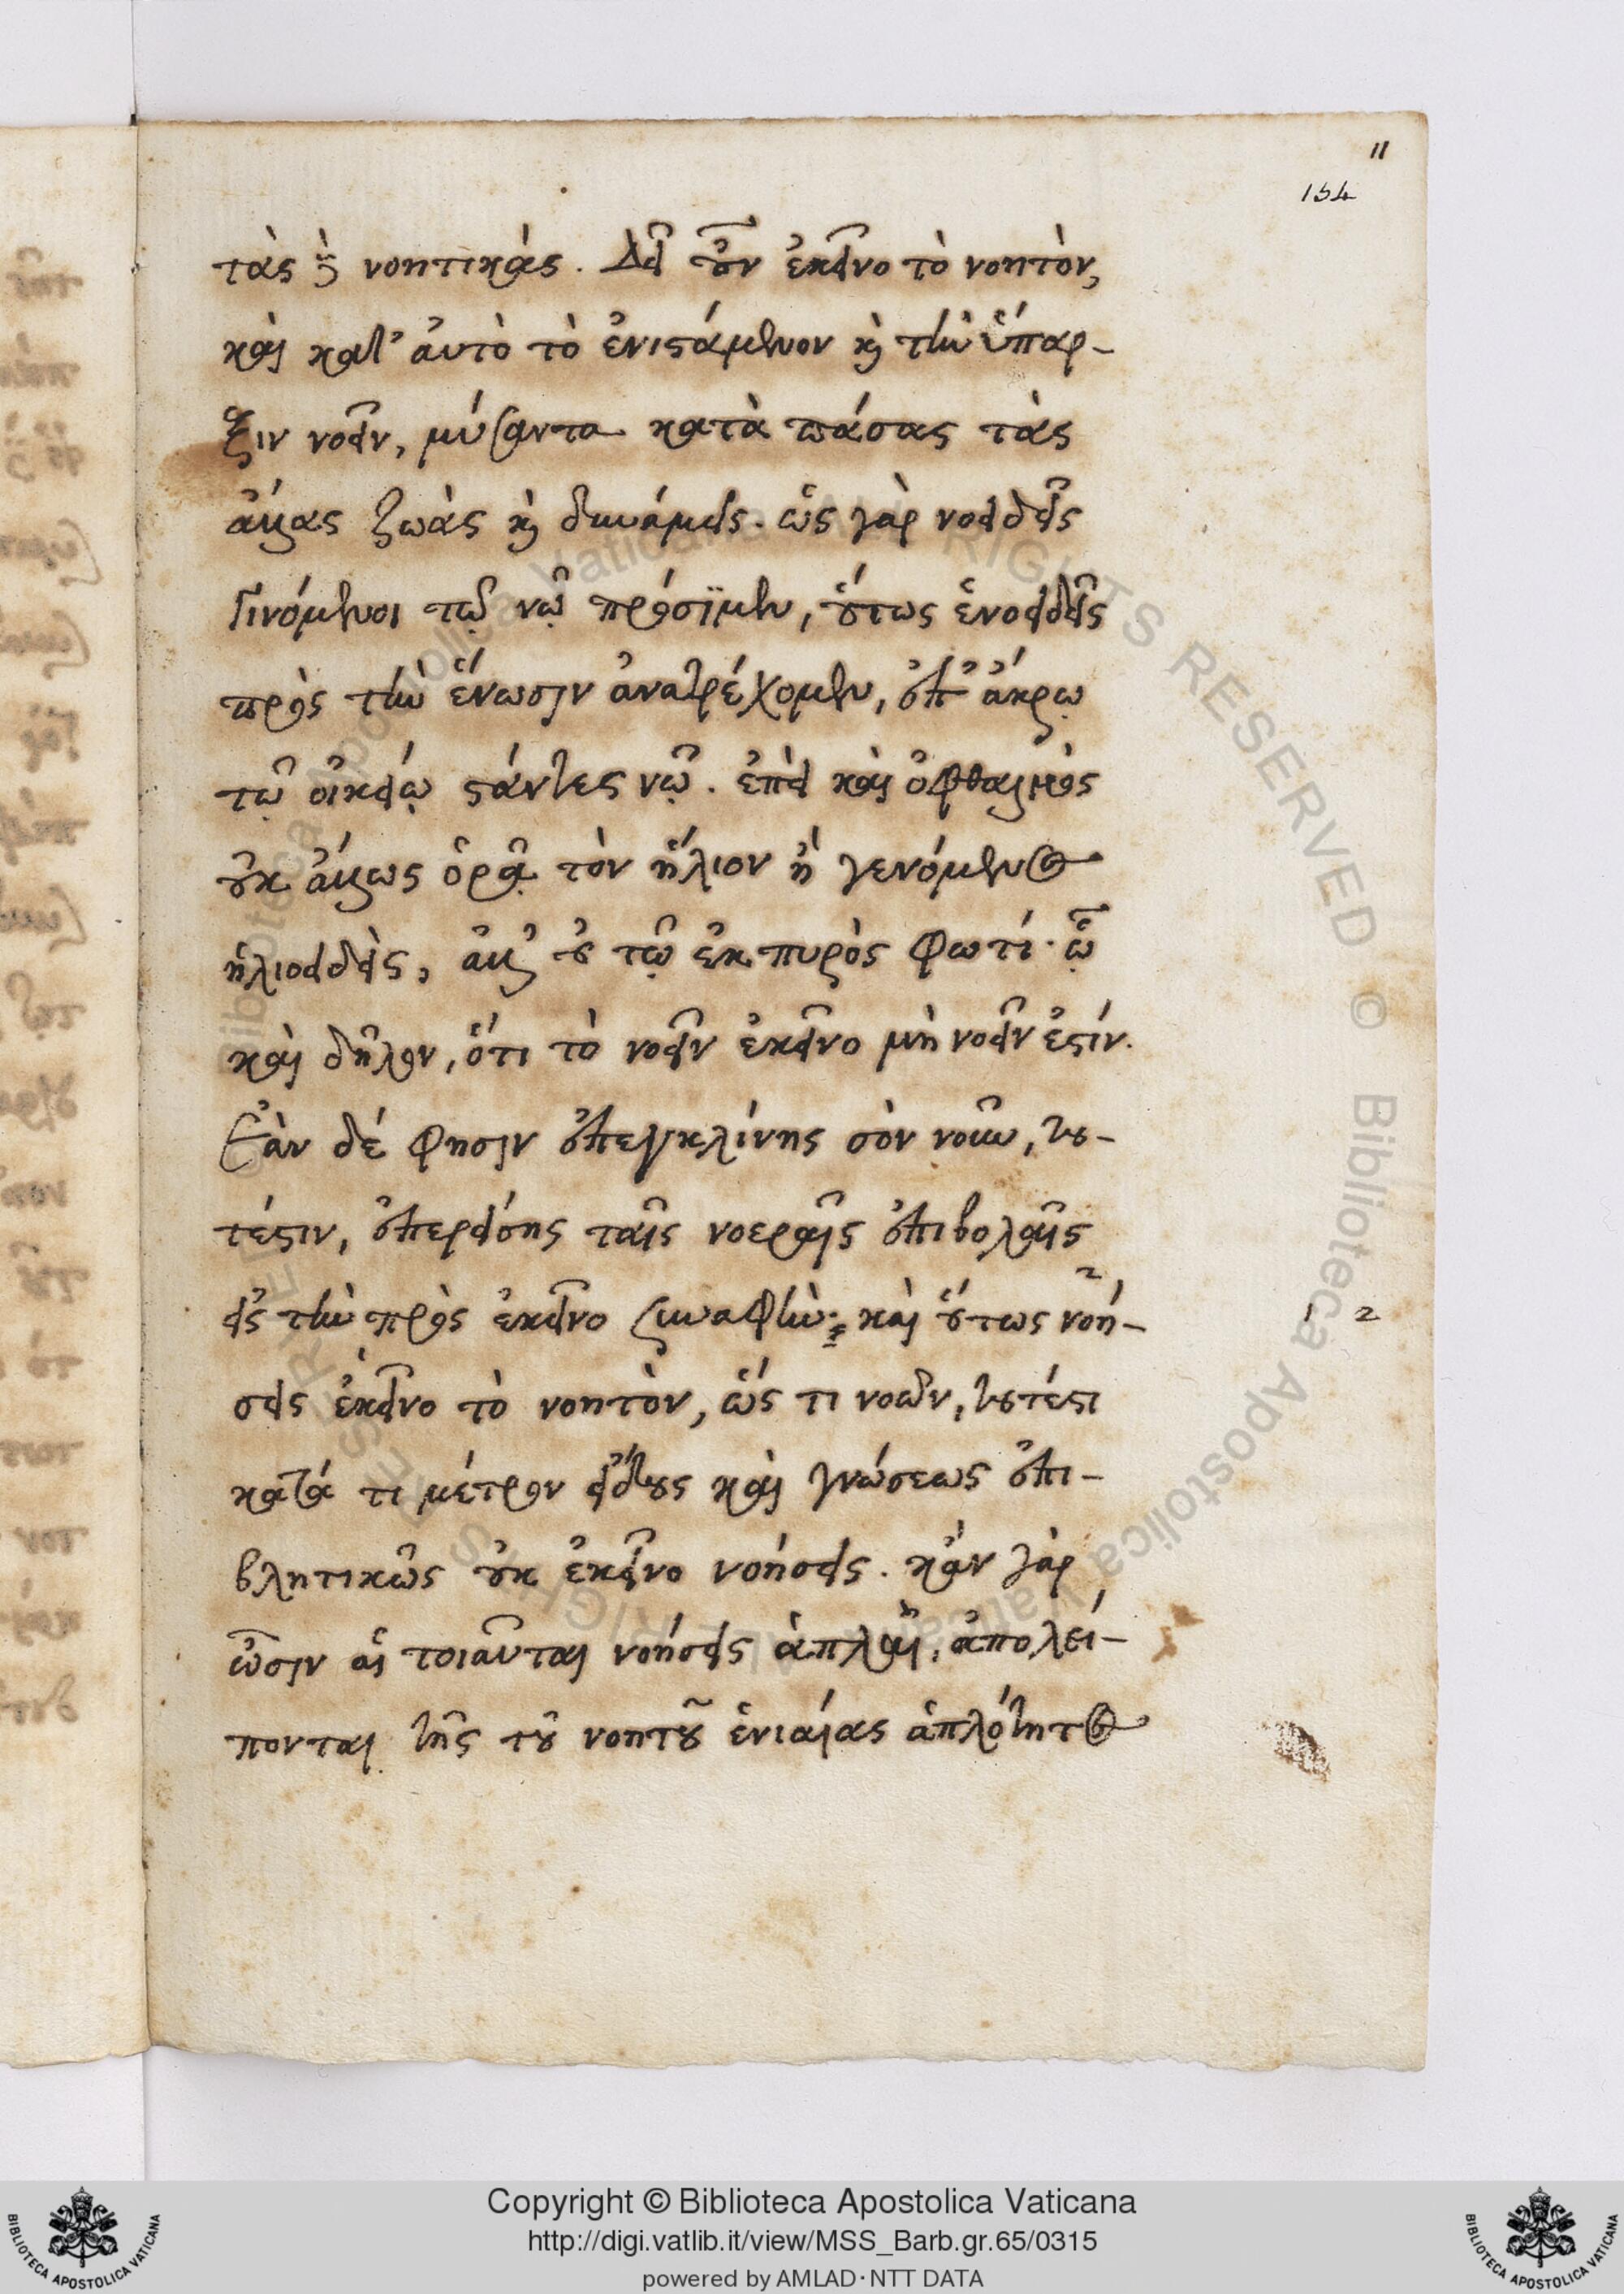 11
154
τὰς ἢ νοητικάς. Δεῖ οὖν ἐκεῖνο τὸ νοητὸν,
καὶ κατ' ἀυτὸ τὸ ἐνιστάμενον καὶ τὴν ὕπαρ-
ξιν νοεῖν, μύσαντα κατὰ πάσας τὰς
ἄλλας ζωὰς καὶ δυνάμεις. ὡς γὰρ νοειδεῖς
γινόμενοι τῷ νῷ πρόσϊμεν, οὕτως ἑνοειδεῖς
πρὸς τὴν ἕνωσιν ἀνατρέχομεν, ἐπ' ἄκρῳ
τῷ οἰκείῳ στάντες νῷ. ἐπεὶ καὶ ὀφθαλμὸς
οὐκ ἄλλως ὁρᾷ τὸν ἥλιον ἢ γενόμενος
ἡλιοειδὴς, ἀλλ' οὐ τῷ ἐκ πυρὸς φωτί. ᾧ
καὶ δῆλον, ὅτι τὸ νοεῖν ἐκεῖνο μὴ νοεῖν ἐστίν.
Ἐὰν δέ φησιν ἐπεγκλίνης σὸν νοῦν, του-
τέστιν, ἐπερείσης ταῖς νοεραῖς ἐπιβολαῖς
εἰς τὴν πρὸς ἐκεῖνο συναφὴν· καὶ οὕτως νοή-
1 2
σεις ἐκεῖνο τὸ νοητὸν, ὥς τι νοῶν, τουτέστι
κατά τι μέτρον εἴδους καὶ γνώσεως ἐπι-
βλητικῶς οὐκ ἐκεῖνο νοήσεις. κἂν γὰρ
ὦσιν αἱ τοιαῦται νοήσεις ἁπλαῖ, ἀπολεί-
πονται τῆς τοῦ νοητοῦ ἑνιαίας ἁπλότητος
Copyright © Biblioteca Apostolica Vaticana
http://digi.vatlib.it/view/MSS_Barb.gr.65/0315
powered by AMLAD·NTT DATA
BIBLIOTECA APOSTOLICA VATICANA
BIBLIOTECA APOSTOLICA VATICANA